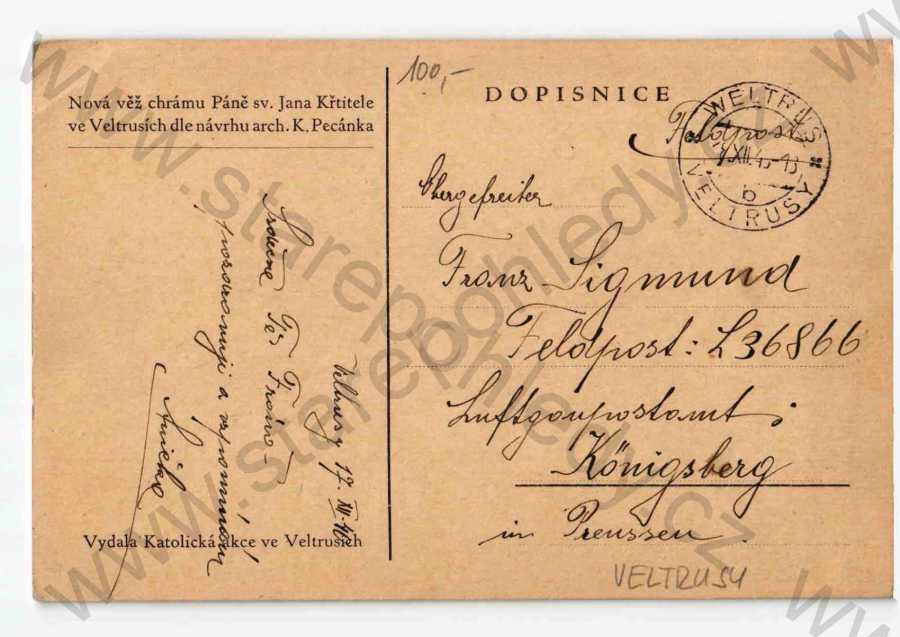 Nová věž chrámu Páně sv. Jana Křtitele
ve Veltrusích dle návrhu arch. K. Pecánka
Veltrusy 17. XII. 40
Srdečně Tě Fráňo
pozdravuji a vzpomínám
Anička
Vydala Katolická akce ve Veltrusích
100,-
DOPISNICE
Feldpost
WELTRUS
XII. 4
b
VELTRUSY
Obergefreiter
Franz Sigmund
Feldpost: L36866
Luftgaupostamt:
Königsberg
in Preussen.
VELTRUSY
www.starepohledy.cz